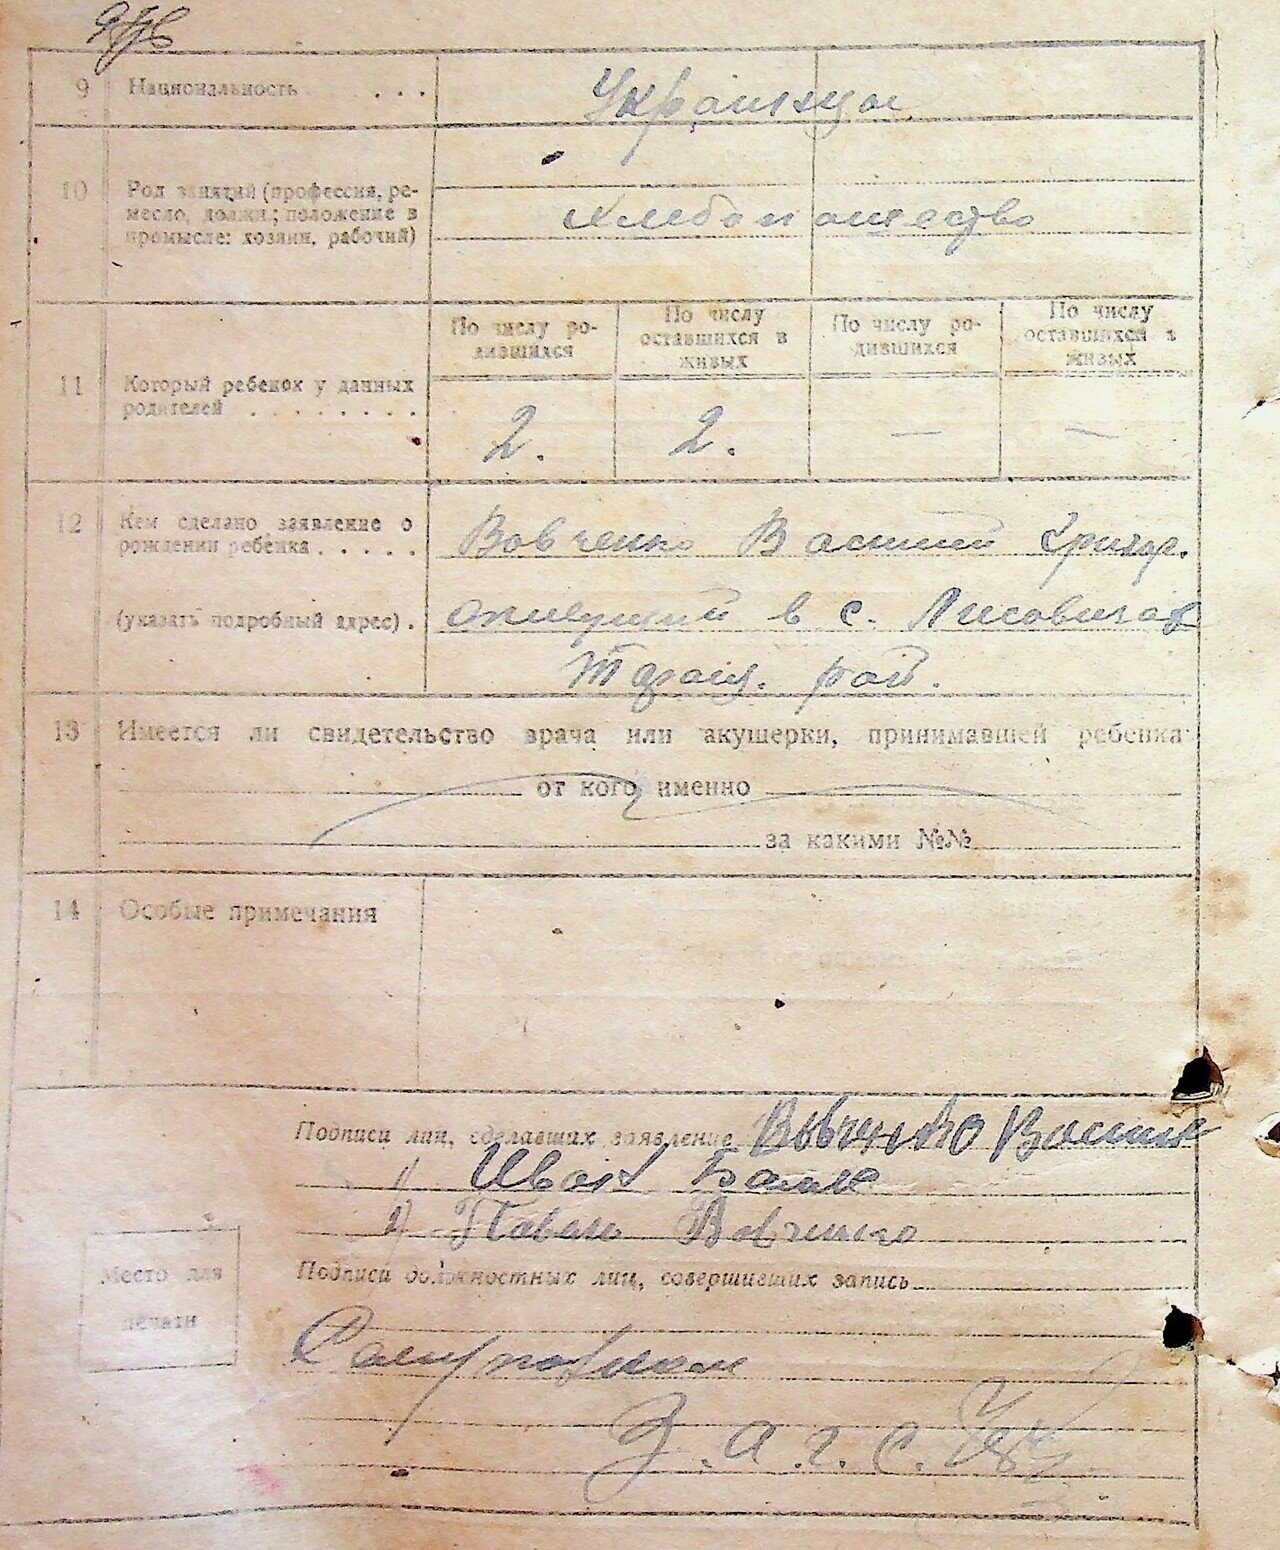 9 Национальность . . . Украинцы
10 Род занятий (профессия, ре-
месло, должн.; положение в
промысле: хозяин, рабочий)
Хлебопашество
По числу ро-
дившихся
По числу
оставшихся в
живых
По числу ро-
дившихся
По числу
оставшихся в
живых
11 Который ребенок у данных
родителей . . . . . . . .
2. 2. — —
12 Кем сделано заявление о
рождении ребенка . . . . .
Вовченко Василий Григор.
(указать подробный адрес) .
живущий в с. Лисовичах
Таращ. рай.
13 Имеется ли свидетельство врача или акушерки, принимавшей ребенка
от кого именно
за какими №№
14 Особые примечания
Подписи лиц, сделавших заявление Вовченко Васил
1) Иван
2) Павло Вовченко
Подписи должностных лиц, совершивших запись
Место для
печати
З.А.Г.С.